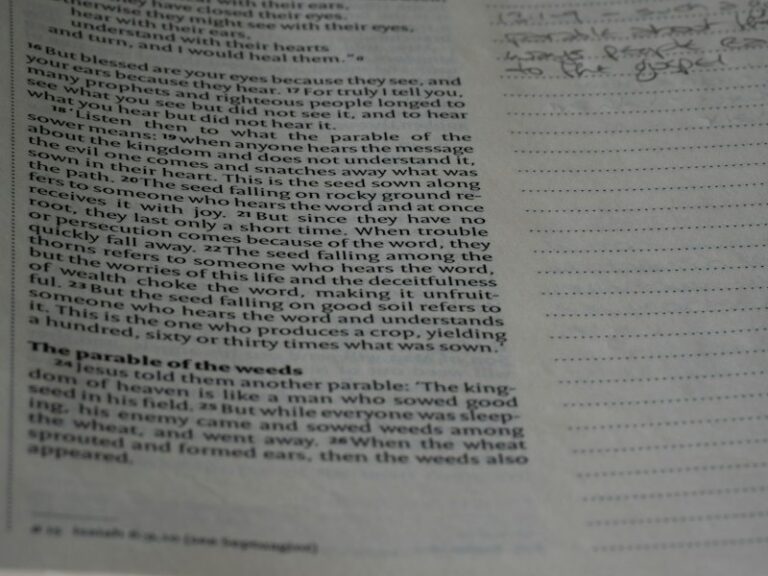 they have closed their eyes.
Otherwise they might see with their eyes,
hear with their ears,
understand with their hearts
and turn, and I would heal them.” a
16 But blessed are your eyes because they see, and
your ears because they hear. 17 For truly I tell you,
many prophets and righteous people longed to
see what you see but did not see it, and to hear
what you hear but did not hear it.
18 ‘Listen then to what the parable of the
sower means: 19 when anyone hears the message
about the kingdom and does not understand it,
the evil one comes and snatches away what was
sown in their heart. This is the seed sown along
the path. 20 The seed falling on rocky ground re-
fers to someone who hears the word and at once
receives it with joy. 21 But since they have no
root, they last only a short time. When trouble
or persecution comes because of the word, they
quickly fall away. 22 The seed falling among the
thorns refers to someone who hears the word,
but the worries of this life and the deceitfulness
of wealth choke the word, making it unfruit-
ful. 23 But the seed falling on good soil refers to
someone who hears the word and understands
it. This is the one who produces a crop, yielding
a hundred, sixty or thirty times what was sown.’
The parable of the weeds
24 Jesus told them another parable: ‘The king-
dom of heaven is like a man who sowed good
seed in his field. 25 But while everyone was sleep-
ing, his enemy came and sowed weeds among
the wheat, and went away. 26 When the wheat
sprouted and formed ears, then the weeds also
appeared.
a 15 Isaiah 6:9,10 (see Septuagint)
parable about
ways people
to the gospel